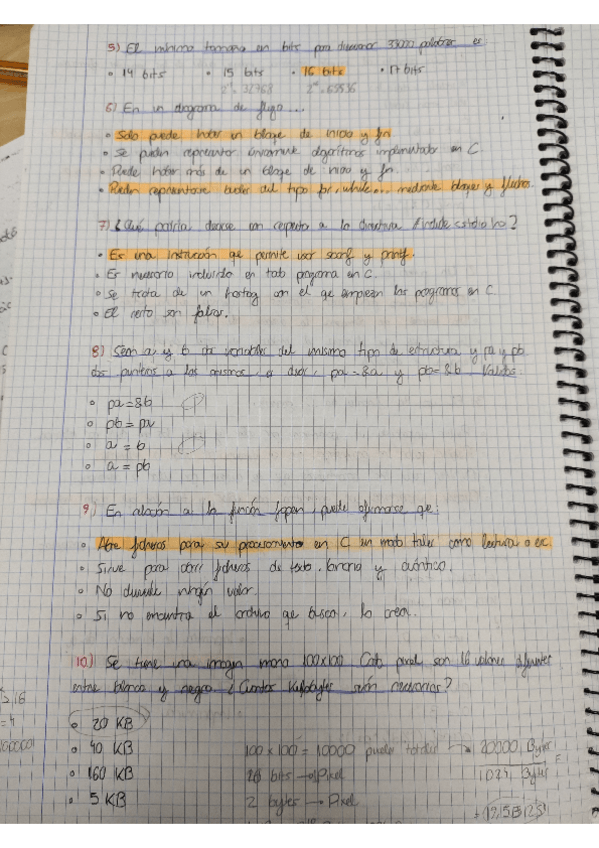 5) El mínimo tamaño en bits para direccionar 33000 palabras es
• 14 bits • 15 bits • 16 bits • 17 bits
2¹⁵ = 32768 2¹⁶ = 65536
6) En un diagrama de flujo...
• Solo puede haber un bloque de inicio y fin
• Se pueden representar únicamente algoritmos implementados en C.
• Puede haber más de un bloque de inicio y fin.
• Pueden representarse bucles del tipo for, while... mediante bloques y flechas.
7) ¿Qué podría decirse con respecto a la directiva #include <stdio.h>?
• Es una instrucción que permite usar scanf y printf.
• Es necesario incluirlo en todo programa en C.
• Se trata de un hastag con el que empiezan los programas en C
• El resto son falsas.
8) Sean a, y b dos variables del mismo tipo de estructura y pa y pb
dos punteros a las mismas, es decir, pa=&a y pb=&b Validas.
• pa=&b
• pb = pa
• a = b
• a = pb
9) En relación a la función fopen, puede afirmarse que:
• Abre ficheros para su procesamiento en C en modo tales como lectura o esc.
• Sirve para abrir ficheros de texto, binario y
• No devuelve ningún valor.
• Si no encuentra el archivo que busca, lo crea.
10) Se tiene una imagen mono 100x100 Cada pixel son 16 valores
entre blanco y negro ¿Cuantos Kilobytes serán necesarios?
• 20 KB
• 40 KB
• 160 KB
• 5 KB
100 x 100 = 10000 20000 Bytes
16 bits → Pixel 1024 Bytes
2 bytes → Pixel